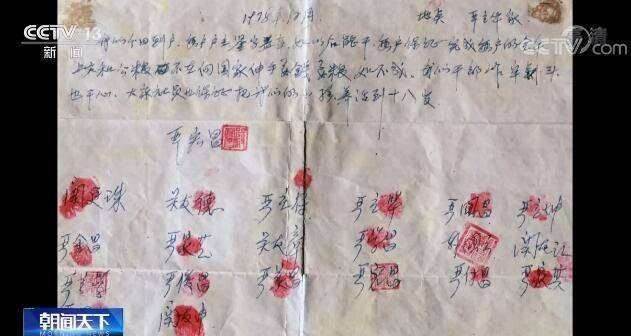 CCTV 13
新闻
CCTV.com
1978年12月 地点 严立华家
我们分田到户,每户户主签字盖章,如以后能干,每户保证完成每户的全年
上交和公粮 不在向国家伸手要钱要粮,如不成,我们干部作牢杀头
也干心,大家社员也保证把我们的小孩养活到十八岁。
严宏昌
关廷珠 关友德 严立符 严立华 严国昌 严立坤
严金昌 严家芝 关友章 严学昌 关友江
严立学 严俊昌 严美昌 严宏昌 严付昌 严家其
关友申
朝闻天下